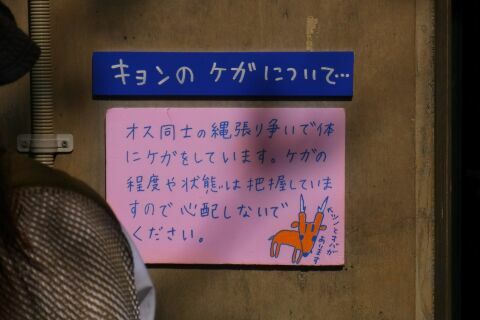 キョンのケガについて…
オス同士の縄張り争いで体
にケガをしています。ケガの
程度や状態は把握していま
すので心配しないで
ください。
あります